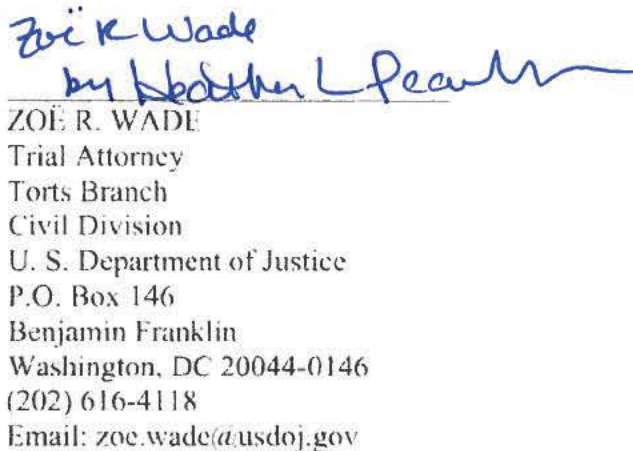 Zoë R Wade
by Heather L Pearlman
ZOË R. WADE
Trial Attorney
Torts Branch
Civil Division
U. S. Department of Justice
P.O. Box 146
Benjamin Franklin
Washington, DC 20044-0146
(202) 616-4118
Email: zoe.wade@usdoj.gov